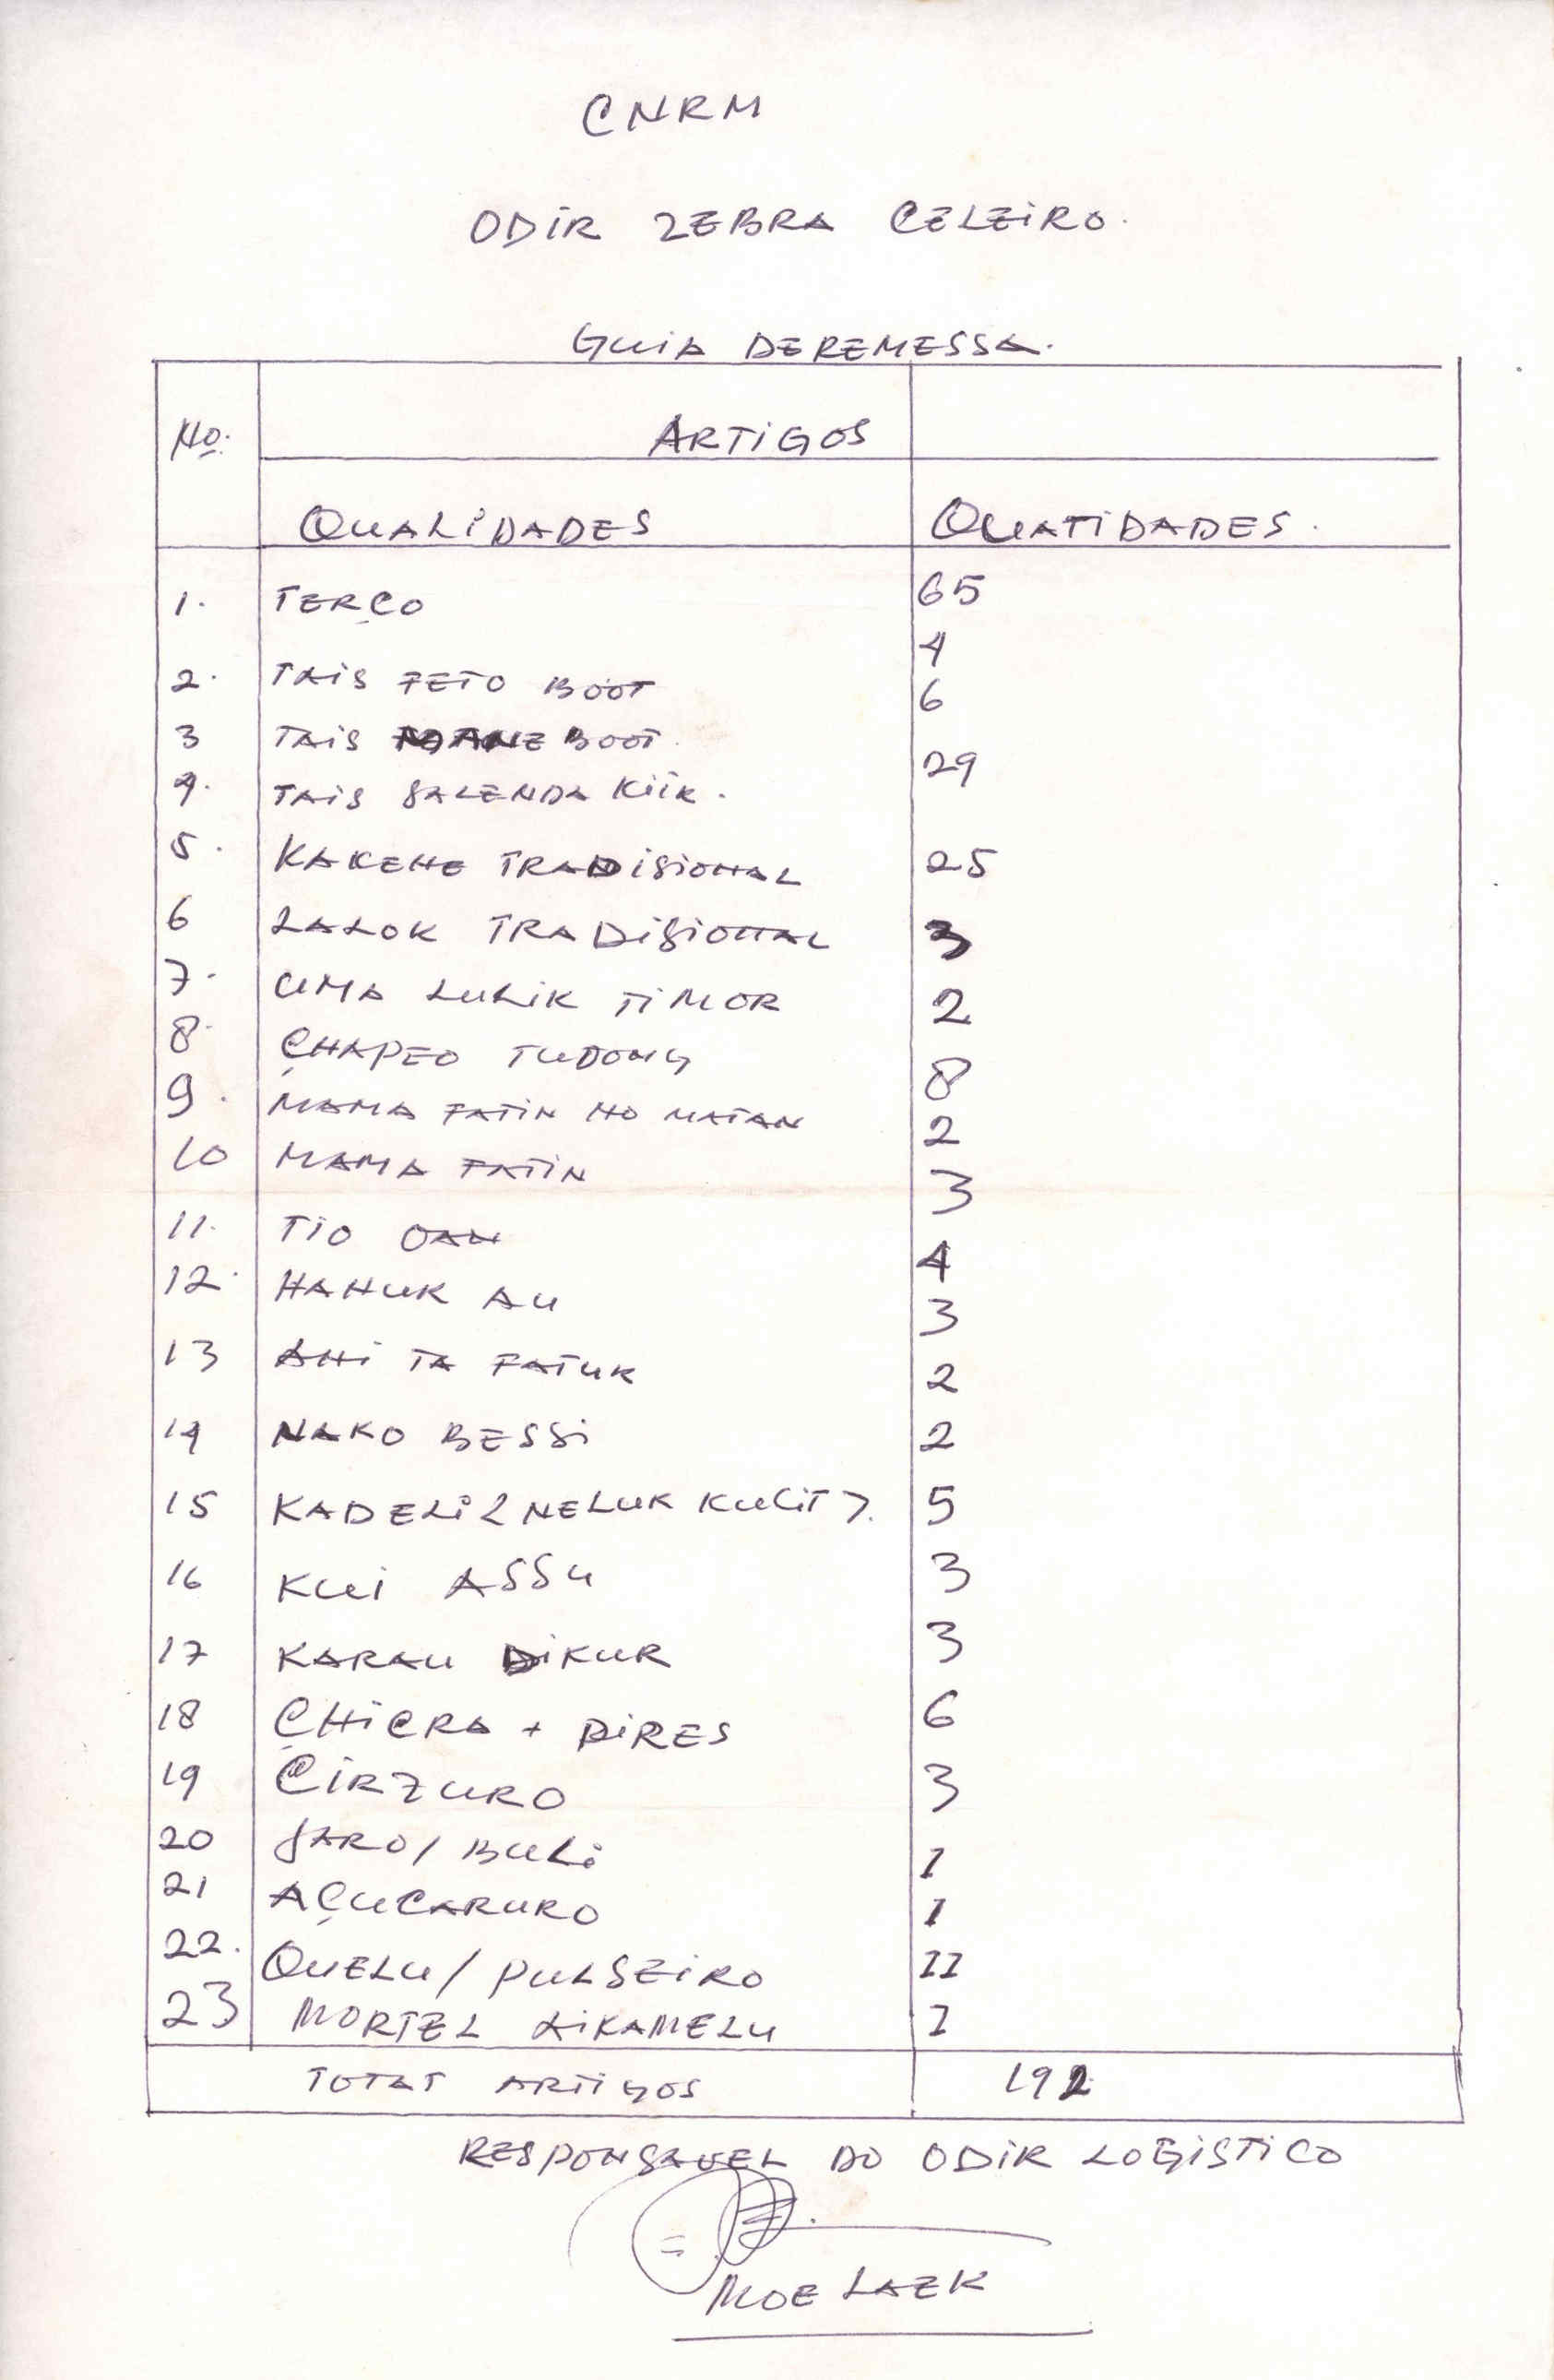 CNRM
ODIR ZEBRA CELEIRO.
GUIA DEREMESSA.
No. ARTIGOS
QUALIDADES QUATIDADES.
1. TERÇO 65
2. TAIS FETO BOOT 4
3 TAIS MANE BOOT. 6
4. TAIS SALENDA KIIK. 29
5. KAKEHE TRADISIONAL 25
6 LALOK TRADISIONAL 3
7. UMA LULIK TIMOR 2
8. ÇHAPEO TUDONG 8
9. MAMA FATIN HO MATAN 2
10 MAMA FATIN 3
11. TIO OAN 4
12. HANUK AU 3
13 AHI TA FATUK 2
14 NAKO BESSI 2
15 KADELI < NELUK KULIT >. 5
16 KUI ASSU 3
17 KARAU DIKUR 3
18 ÇHICRA + PIRES 6
19 CIRZURO 3
20 JARO/ BULI 1
21 AÇUCARURO 1
22. QUELU/ PULSEIRO 11
23 MORTEL LIKAMELU 1
TOTAT ARTIGOS 192
RESPONSAVEL DO ODIR LOGISTICO
MOE LAEK